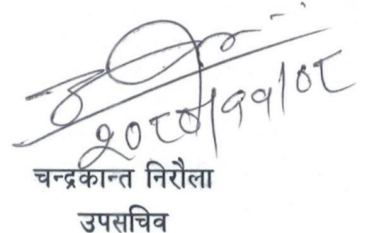 २०८०/११/०८
चन्द्रकान्त निरौला
उपसचिव